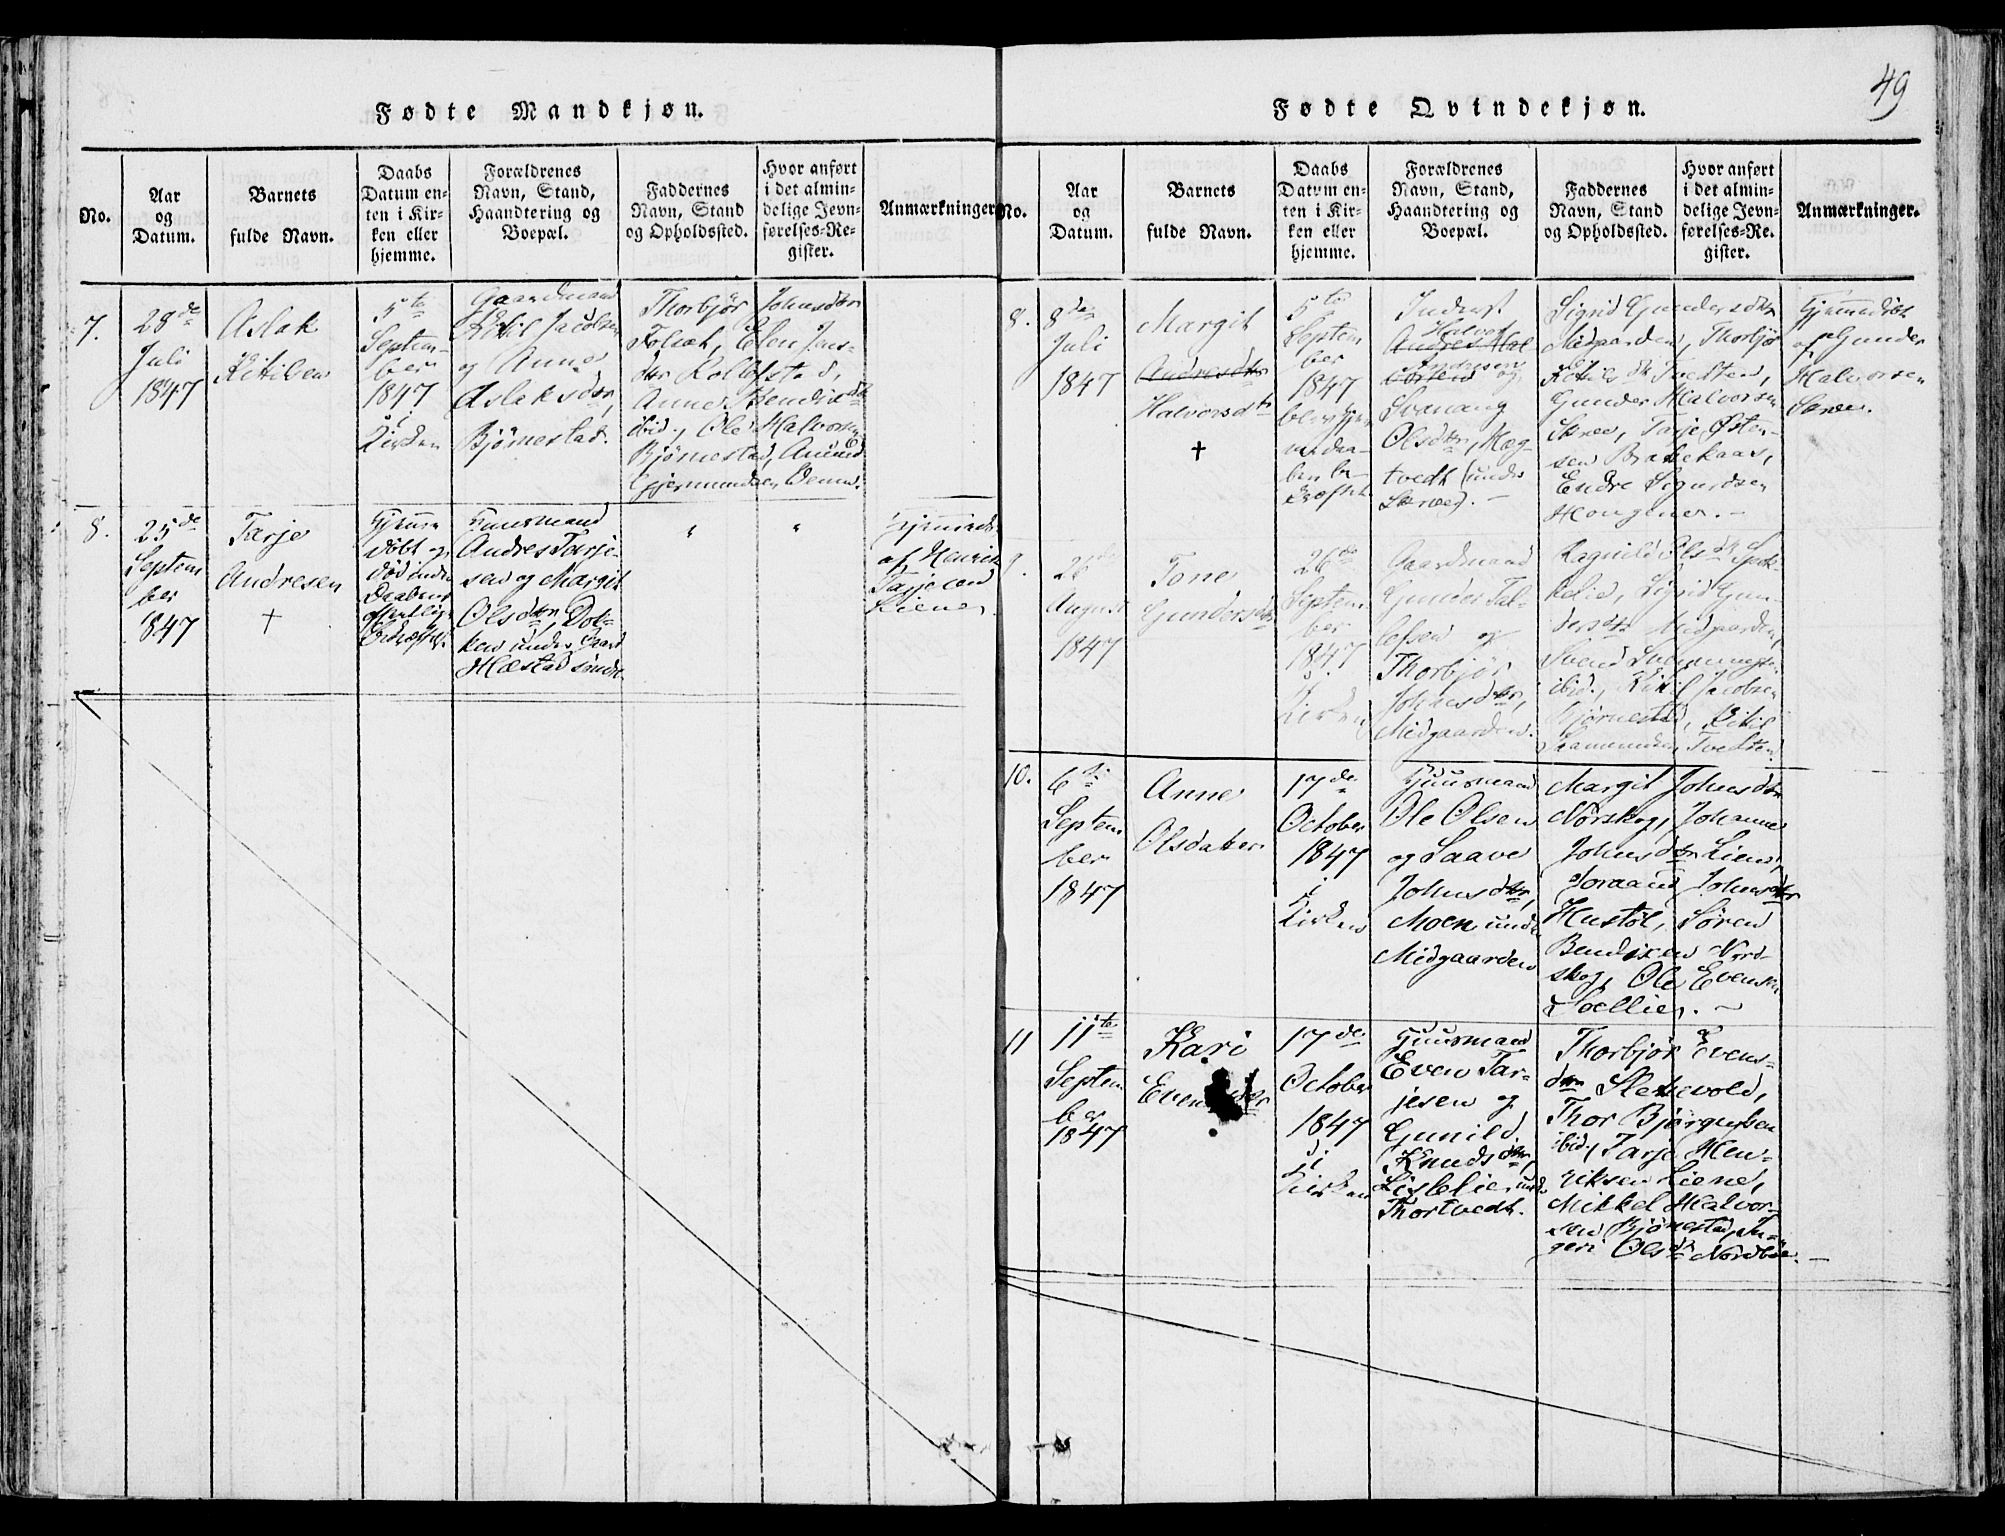 49
Fødte Mandkjøn.
No.
Aar
og
Datum.
Barnets
fulde Navn.
Daabs
Datum en-
ten i Kir-
ken eller
hjemme.
Forældrenes
Navn, Stand,
Haandtering og
Boepæl.
Faddernes
Navn, Stand
og Opholdssted.
Hvor anført
i det almin-
delige Jevn-
førelses-Re-
gister.
Anmærkninger
7.
28de
Juli
1847
Aslak
Kitilsen
5te
Septem-
ber
1847
i
Kirken
Gaardmand
Kitil Jacobsen
og Anne
Aslaksdtr,
Bjørnestad.
Thorbjør Johnsdtr
Folsæt, Elen Jens-
dtr Kollefstad,
Anne Bendixdtr
ibid., Ole Halvorsen
Bjørnestad, Amund
Gjermundsen
8.
25de
Septem
ber
1847
Tarje
Andresen
†
Hjemme
døbt og
død inden
Daabens
offentlige
Huusmand
Andres Tarje-
sen og Margit
Olsdtr, Dok-
ken under Gaard
Hæstad søndre
"
"
Hjemmed.
af Henrik
Tarjesen
Liene.
Fødte Qvindekjøn.
No.
Aar
og
Datum.
Barnets
fulde Navn.
Daabs
Datum en-
ten i Kir-
ken eller
hjemme.
Forældrenes
Navn, Stand,
Haandtering og
Boepæl.
Faddernes
Navn, Stand
og Opholdssted.
Hvor anført
i det almin-
delige Jevn-
førelses-Re-
gister.
Anmærkninger.
8.
8de
Juli
1847
Margit
Andresdtr
Halvorsdtr
†
5te
Septem
ber
1847
Inderst
Halvor
Andres Hal
Andresen
vorsen og
Svanaug
Olsdtr, Hæg-
tvedt (under
Skree). -
Sigrid Gundersdtr
Midgaarden, Thorbjør
Kitilsdtr Tvedten,
Gunder Halvorsen
Skree, Tarje Østen-
sen Brakekaas,
Endre Sigurdsen
Haugene. -
Hjemmedøbt
af Gunder
Halvorsen
Skree.
9.
August
1847
Tone
Gundersdtr
26de
Septem
ber
1847
i
Kirken
Gaardmand
Gunder Tal-
lefsen og
Thorbjør
Johnsdtr,
Midgaarden.
Ragnild Olsdtr
Sigrid Gun-
dersdtr Midgaarden,
Svend
ibid., Kitil Jacobsen
Bjørnestad, Kitil
Tvedten
10.
6te
Septem
ber
1847
Anne
Olsdatter
17de
October
1847
i
Kirken
Huusmand
Ole Olsen
og Saave
Johnsdtr,
Moen under
Midgaarden
Margit Johnsdtr
Nørskog, Johanne
Johnsdtr Liene,
Joraand Johnsdtr
Hustøl, Søren
Bendixen Nord-
skog, Ole Evensen
11
11te
Septem
ber
1847
Kari
17de
October
1847
i
Kirken
Huusmand
Even Tar-
jesen og
Gunild
Knudsdtr,
Lislelie under
Thortvedt.
Thorbjør Evens-
dtr Slettevold,
Thor Bjørgulsen
ibid, Tarje Hen-
riksen Liene,
Mikkel Halvor-
sen Bjørnestad, In-
geri Olsdtr Nordbøe. -